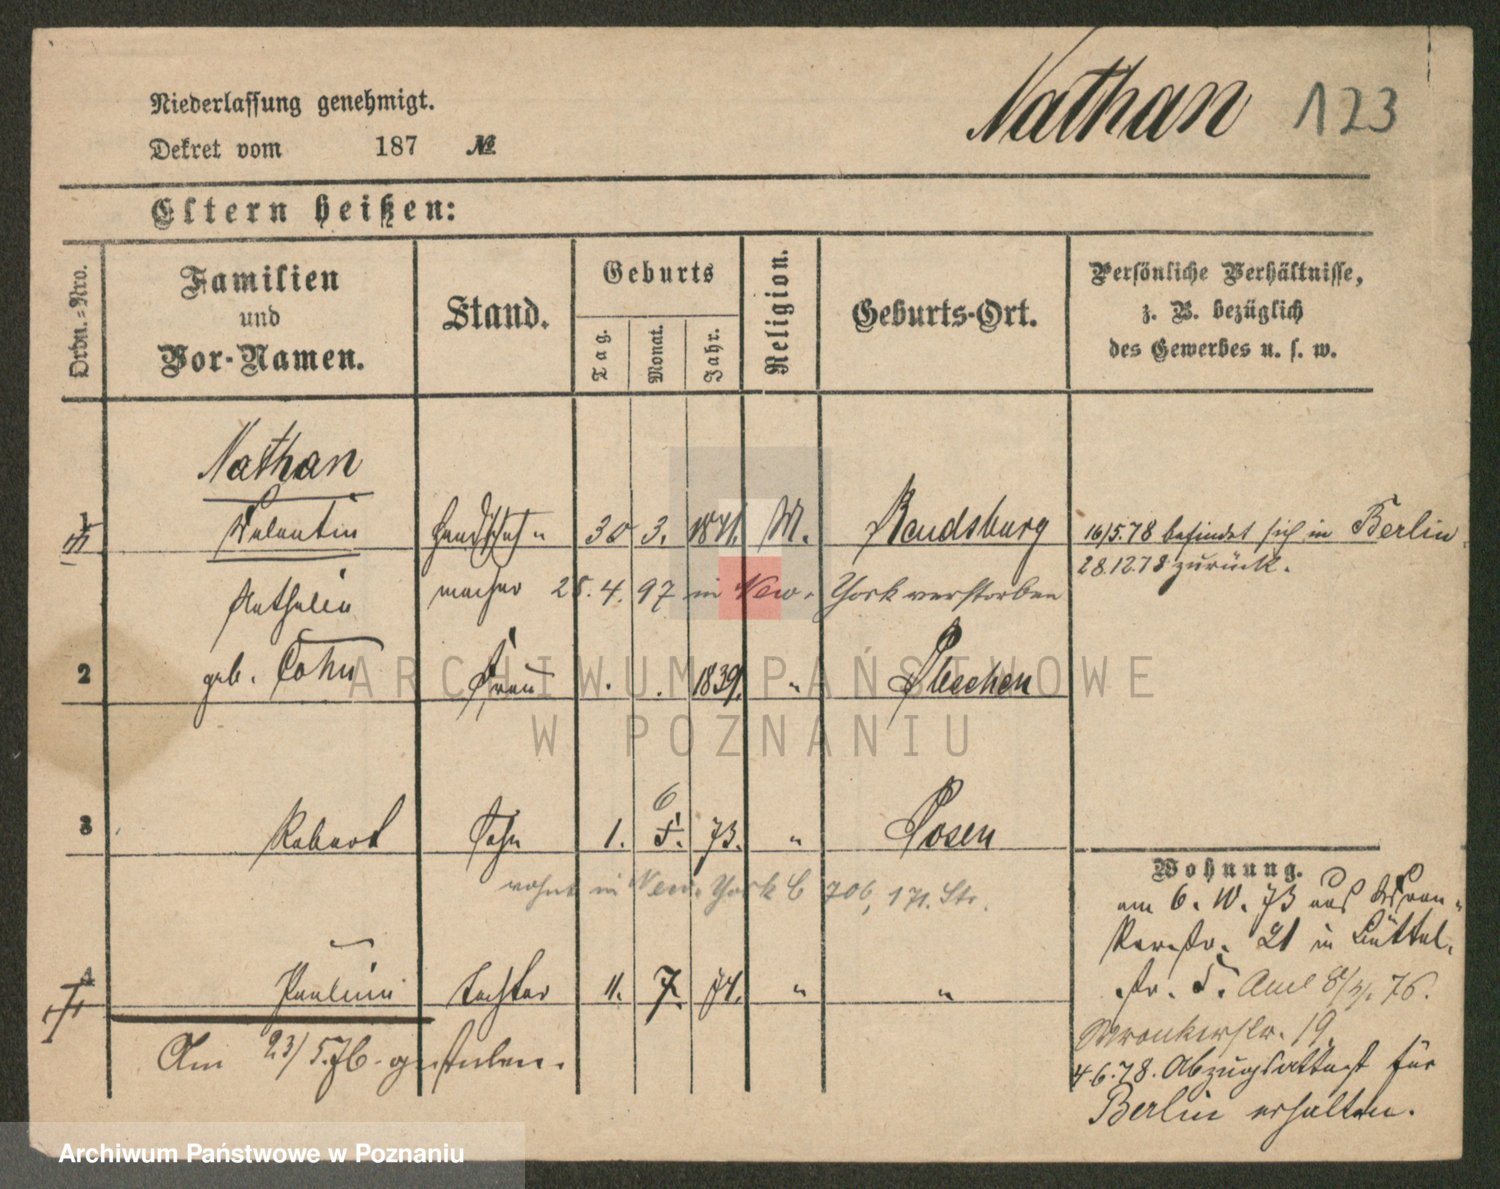 Niederlassung genehmigt.
Nathan 123
Dekret vom 187 №
Eltern heißen:
Ordn.-Nro.
Familien
und
Vor-Namen.
Stand.
Geburts
Tag.
Monat.
Jahr.
Religion.
Geburts-Ort.
Persönliche Verhältnisse,
z. B. bezüglich
des Gewerbes u. s. w.
Nathan
1 Valentin Handschuh- 30 3. M. Bandsburg 16/5.78 befindet sich in Berlin
28.12.78 zurück.
macher 28.4.97 in New-York verstorben
geb. Cohn
2 Frau 1839. "
3 Robert Sohn 1. 5. 6 73. " Posen
wohnt in New-York 706, 171. Str.
Wohnung.
am 6. 10. 73 aus
21 in Büttel-
str. 5. 76.
4 Pauline Tochter 11. 7. 74. " "
Wronkerstr. 19.
Am 23/5.76. gestorben.
4.6.78. Abzugsattest für
Berlin erhalten.
ARCHIWUM PAŃSTWOWE
W POZNANIU
Archiwum Państwowe w Poznaniu